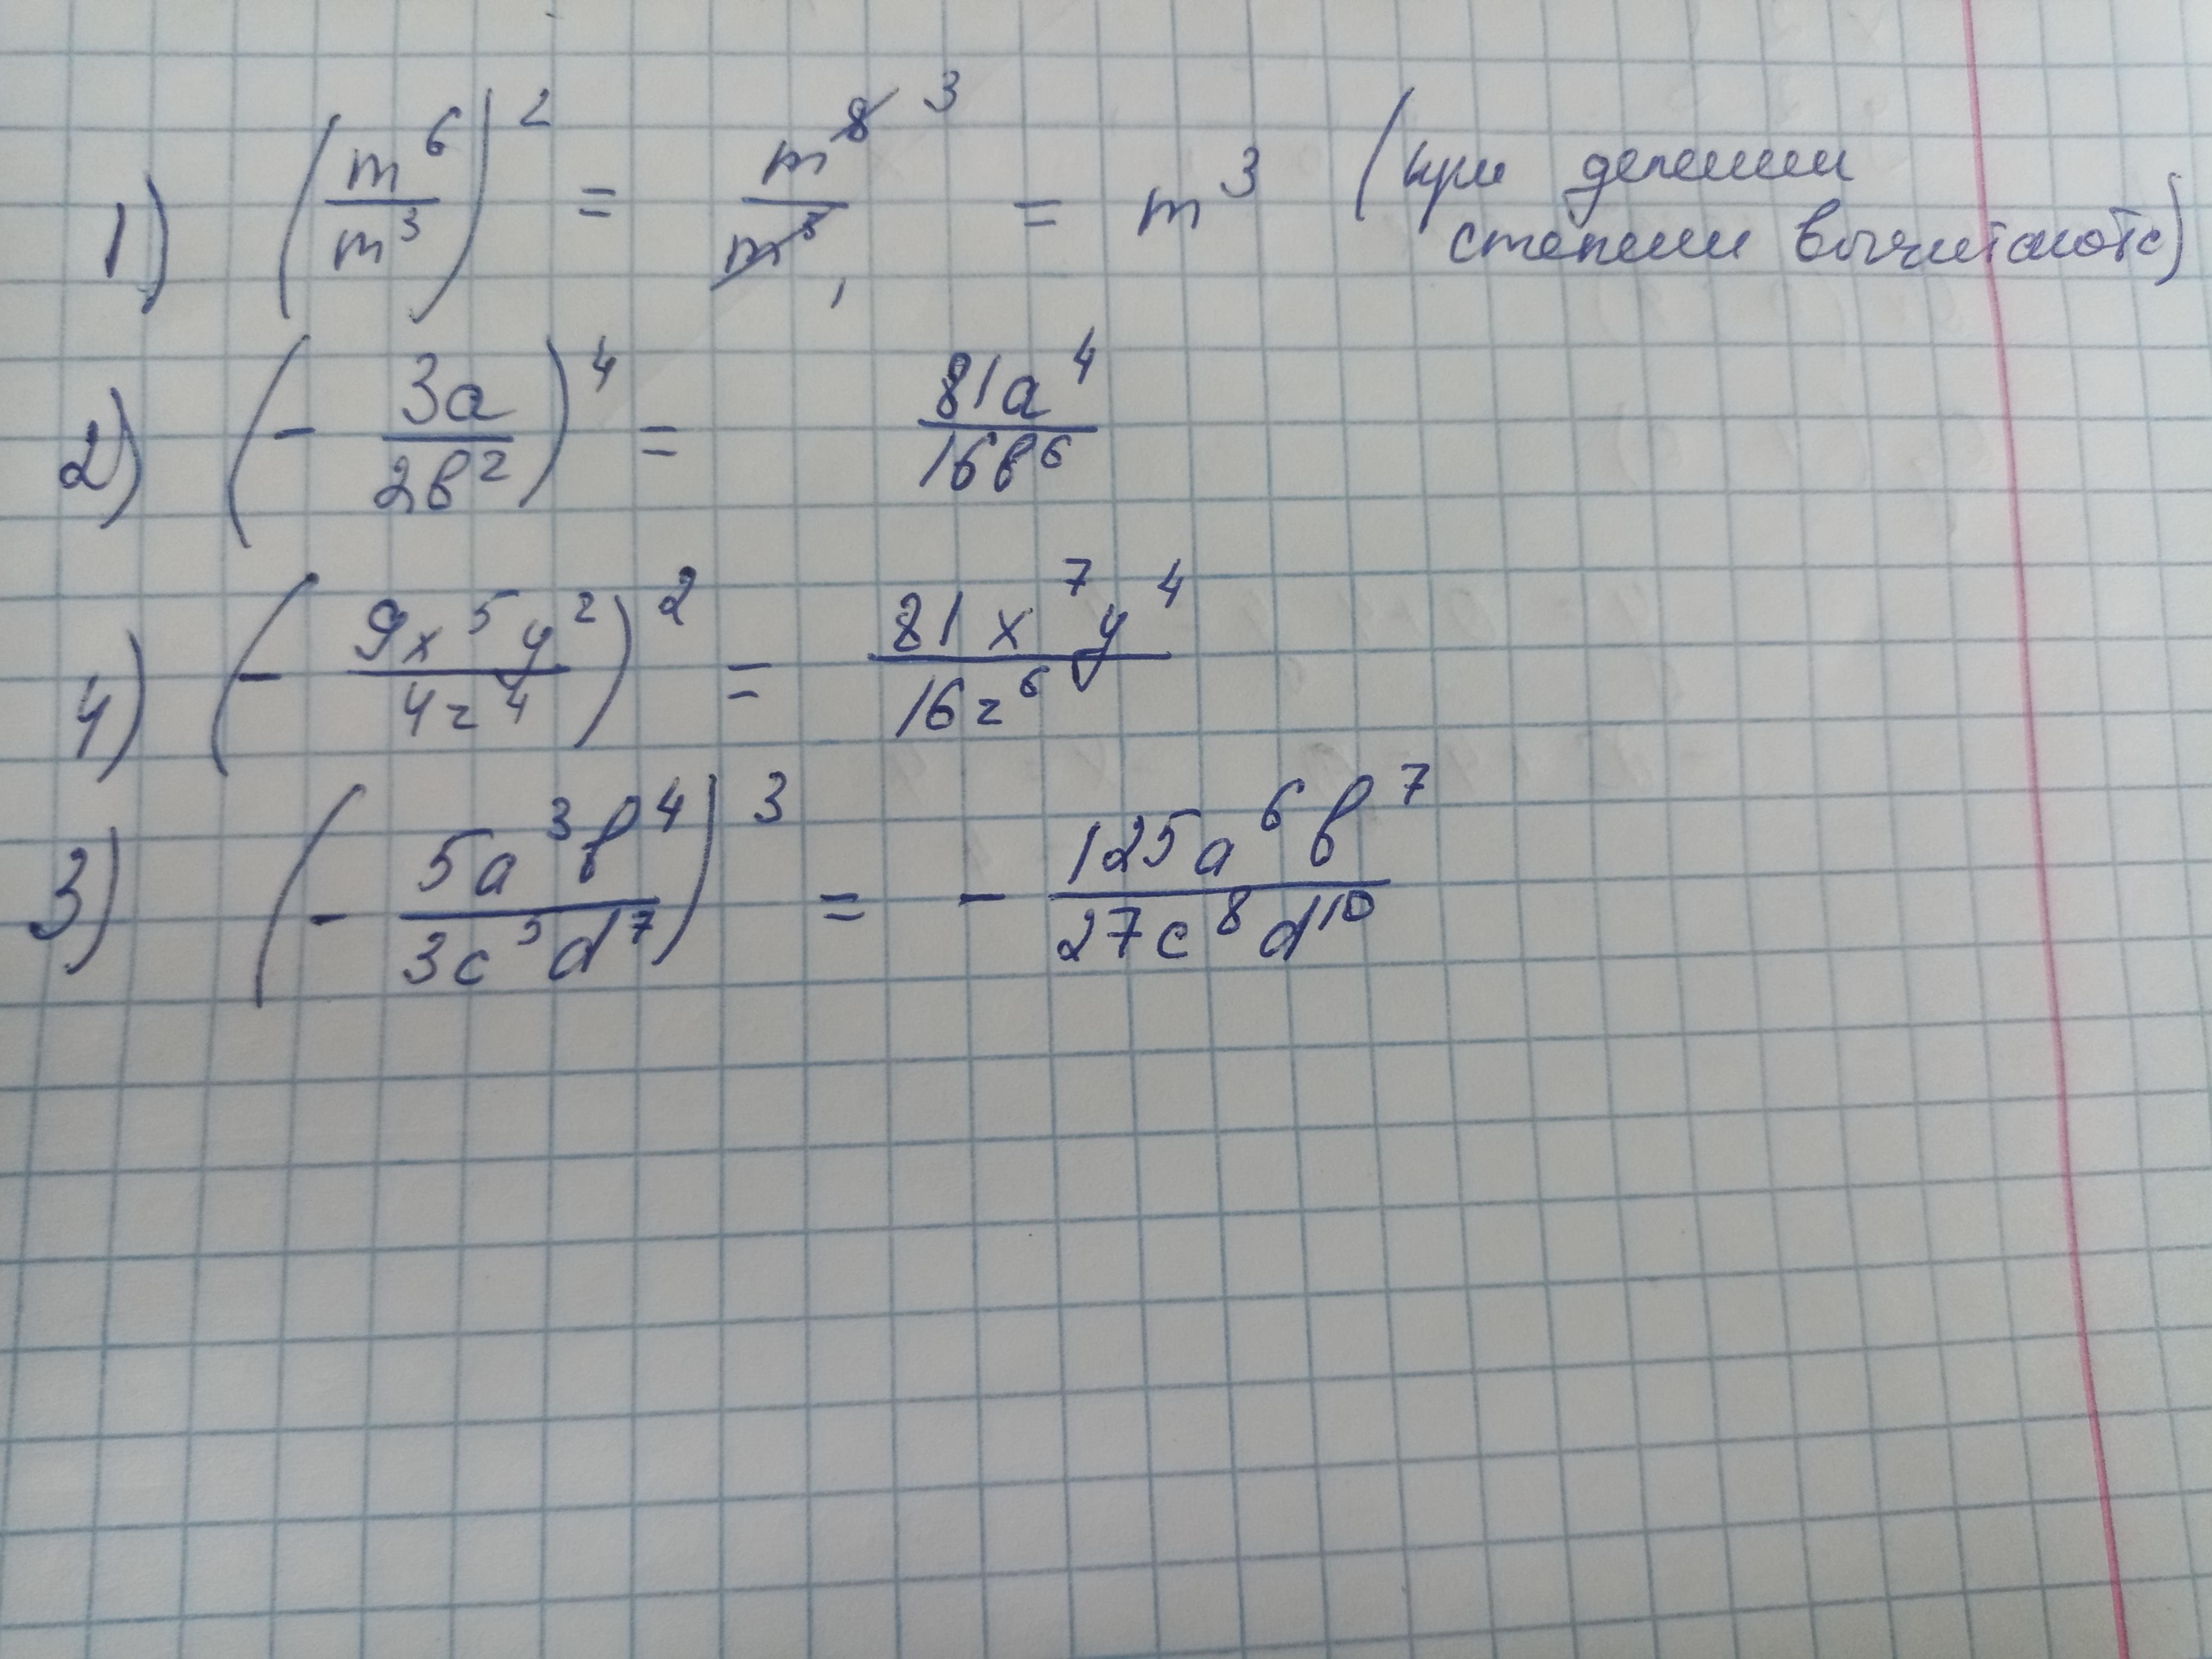 1) (m⁶/m³)² = m⁸ ³/m⁵ ₁ = m³ (при делении
степени вычитаются)
2) (- 3a/2b²)⁴ = 81a⁴/16b⁶
4) (- 9x⁵y²/4z⁴)² = 81x⁷y⁴/16z⁶
3) (- 5a³b⁴/3c⁵d⁷)³ = - 125a⁶b⁷/27c⁸d¹⁰